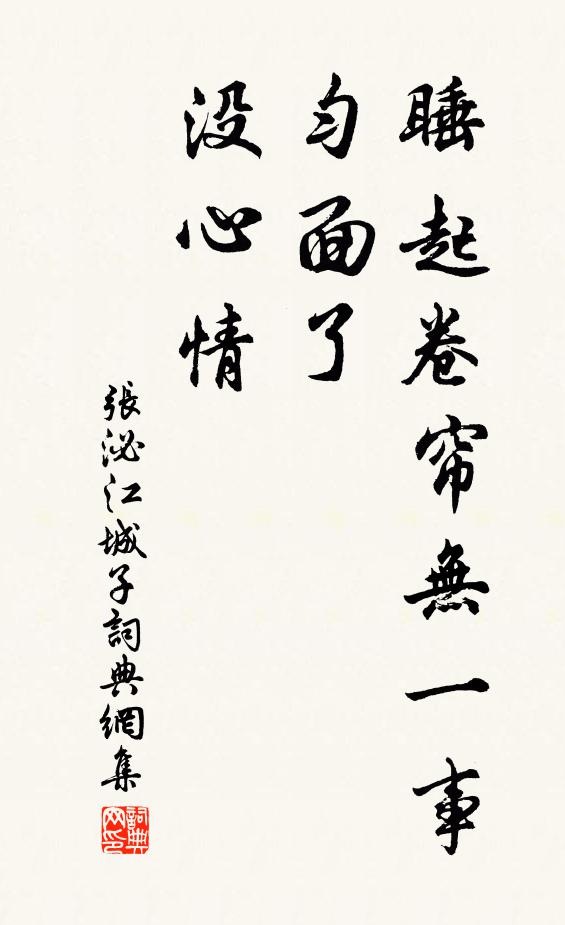 睡起卷帘無一事
勻面了
没心情
張泌江城子詞典網集
詞典网印